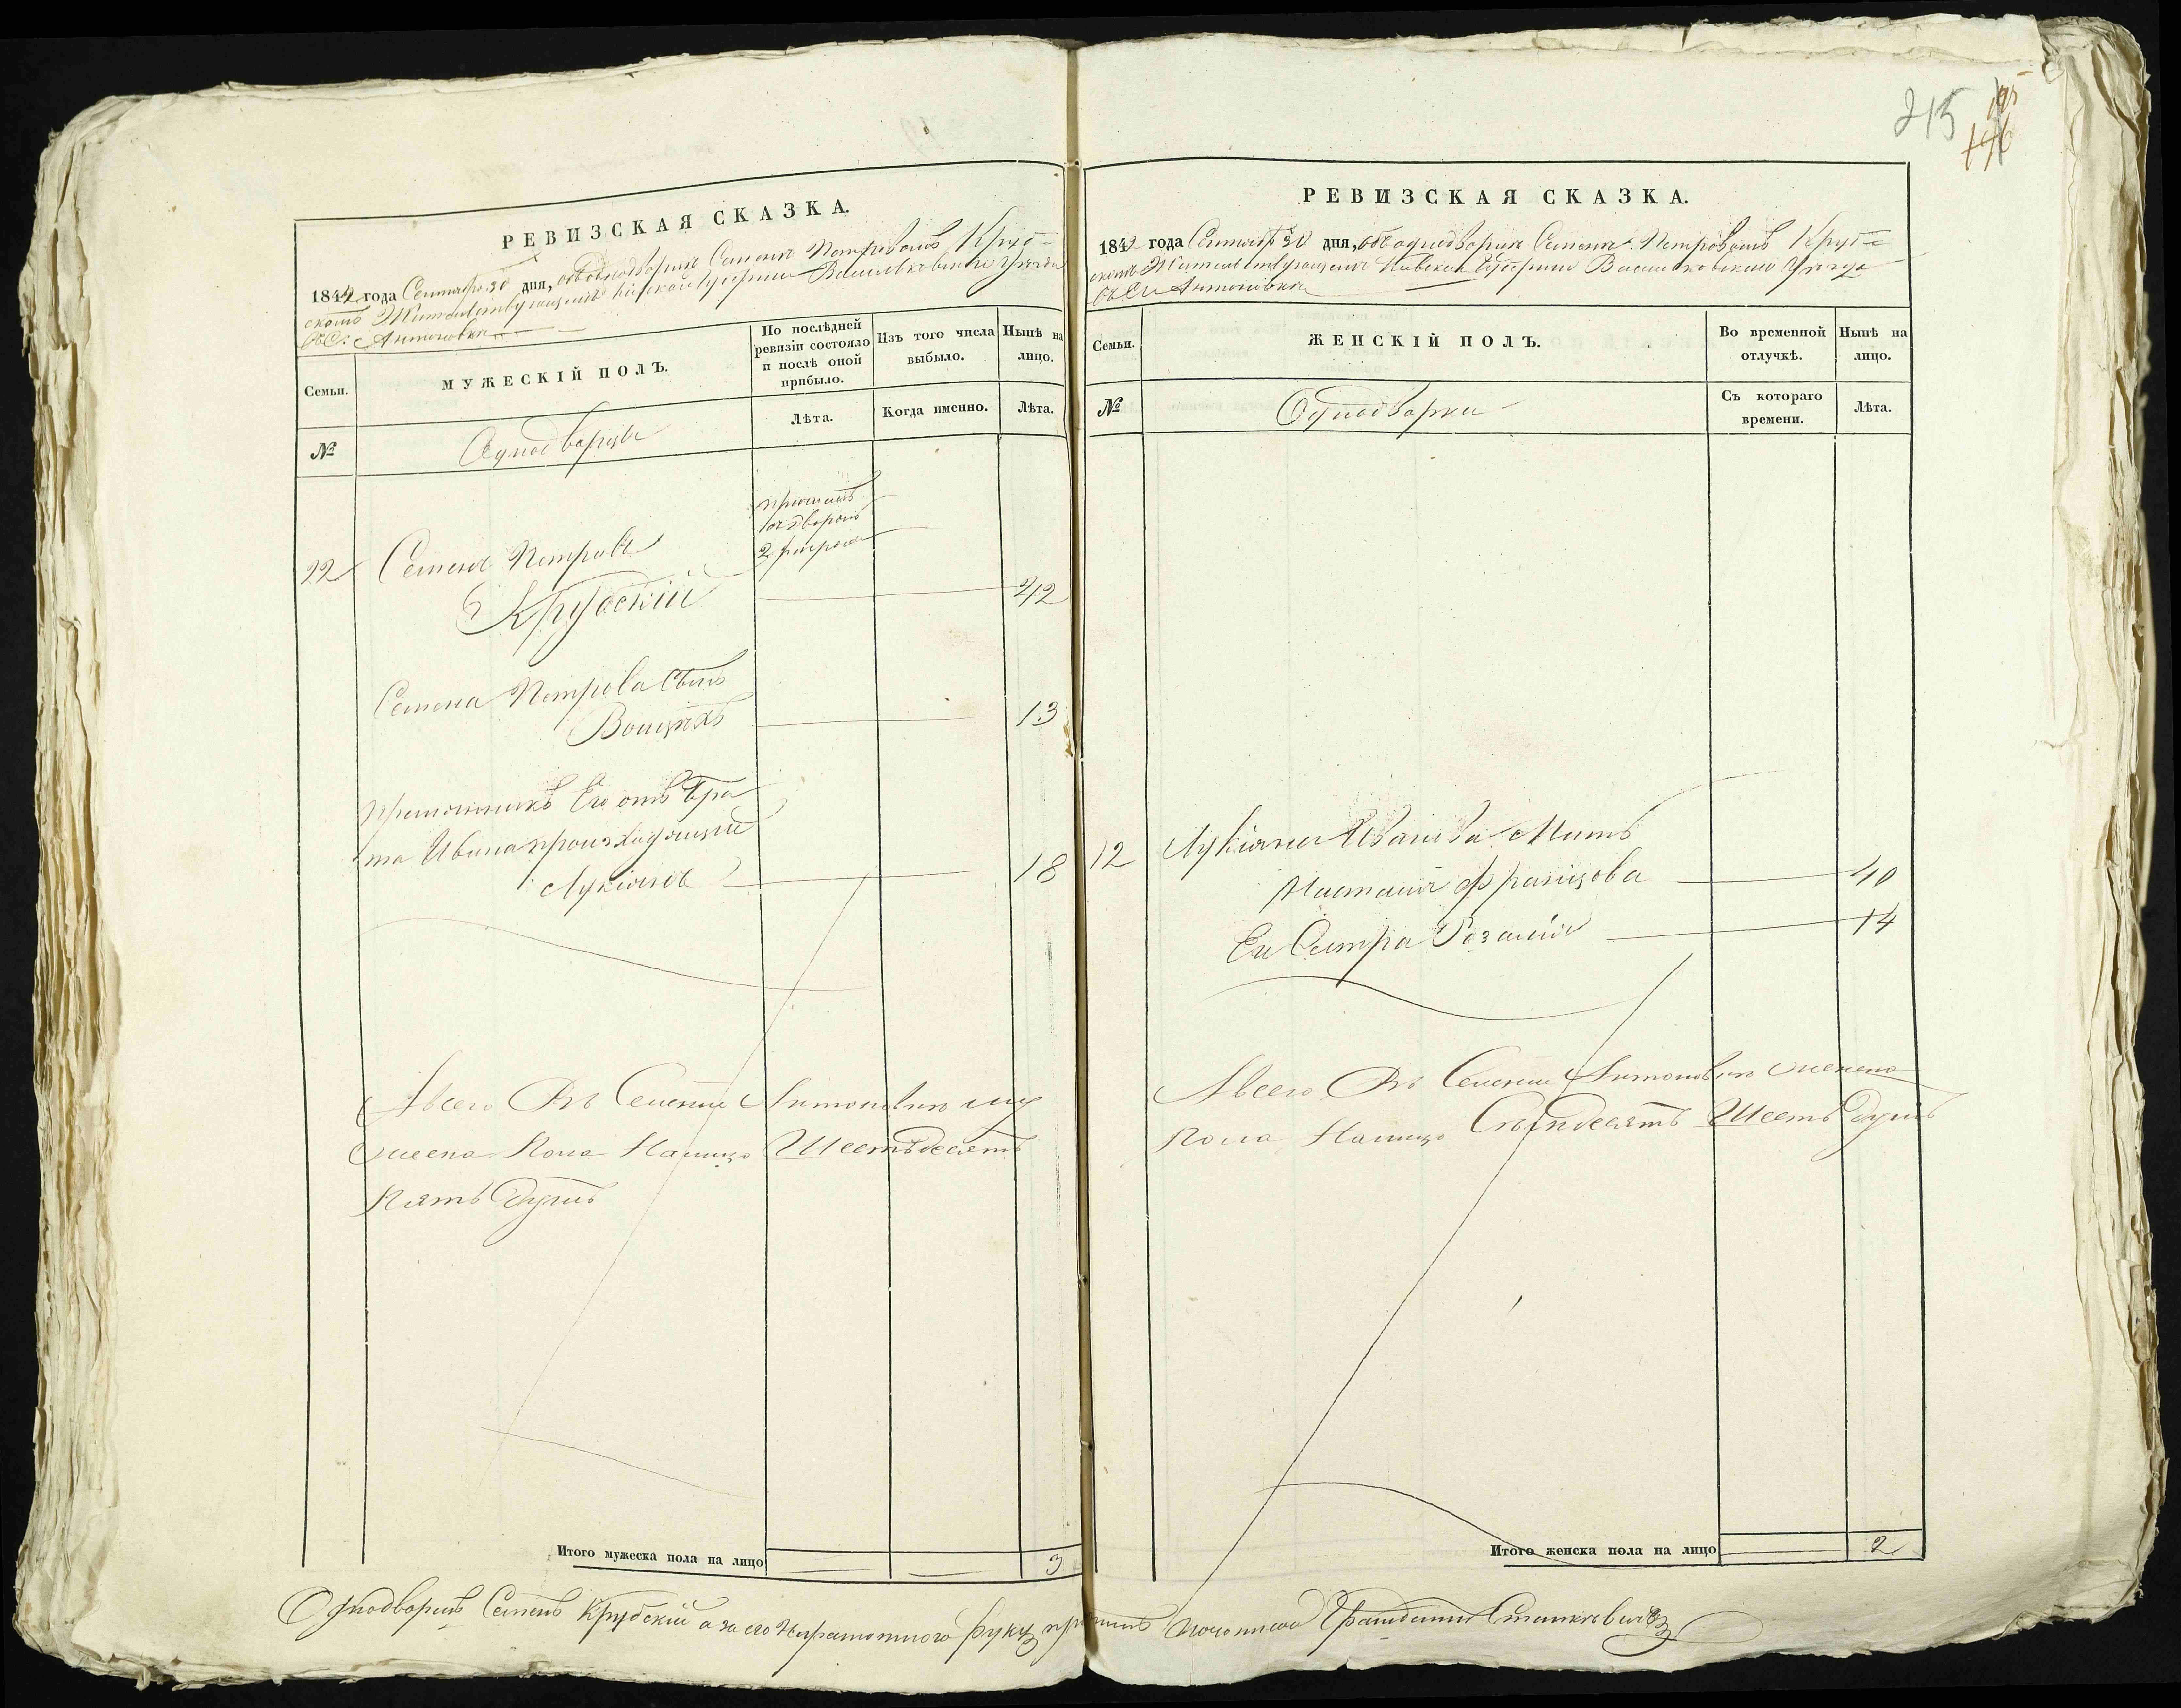 215
195
196
РЕВИЗСКАЯ СКАЗКА.
1842 года Сентября 30 дня, объ однодворцѣ Семенѣ Петровомъ Круб=
скомъ Жительствующемъ Кіевской Губерніи Васильковскаго Уѣзда
въ С: Антоновкѣ
Семьи.
МУЖЕСКІЙ ПОЛЪ.
По послѣдней ревизіи состояло и послѣ оной прибыло.
Изъ того числа выбыло.
Нынѣ на лицо.
№
Однодворцы
Лѣта.
Когда именно.
Лѣта.
2 разряда
22 Семенъ Петровъ
Крубскій 42
Семена Петрова Сынъ
Войцѣхъ 13
Племянникъ Его отъ Бра
та Ивана произходящій
Лукіянъ 18
А всего Въ Селеніи Антоновкѣ му
жеска Пола Налицо Шестьдесятъ
Пять Душъ
Итого мужеска пола на лицо 3
РЕВИЗСКАЯ СКАЗКА.
1842 года Сентября 30 дня, объ однодворцѣ Семенѣ Петровомъ Круб=
скомъ Жительствующемъ Кіевской Губерніи Васильковскаго Уѣзда
въ С: Антоновкѣ
Семьи.
ЖЕНСКІЙ ПОЛЪ.
Во временной отлучкѣ.
Нынѣ на лицо.
№
Однодворки
Съ котораго времени.
Лѣта.
12 Лукіяна Иванова Мать
Настасія Францова 40
Ея Сестра Розалія 14
А всего Въ Селеніи Антоновкѣ женска
Пола Налицо Семьдесятъ Шесть Душъ
Итого женска пола на лицо 2
Однодворецъ Семенъ Крубскій а за его неграмотнаго руку приложилъ Станкѣвичъ